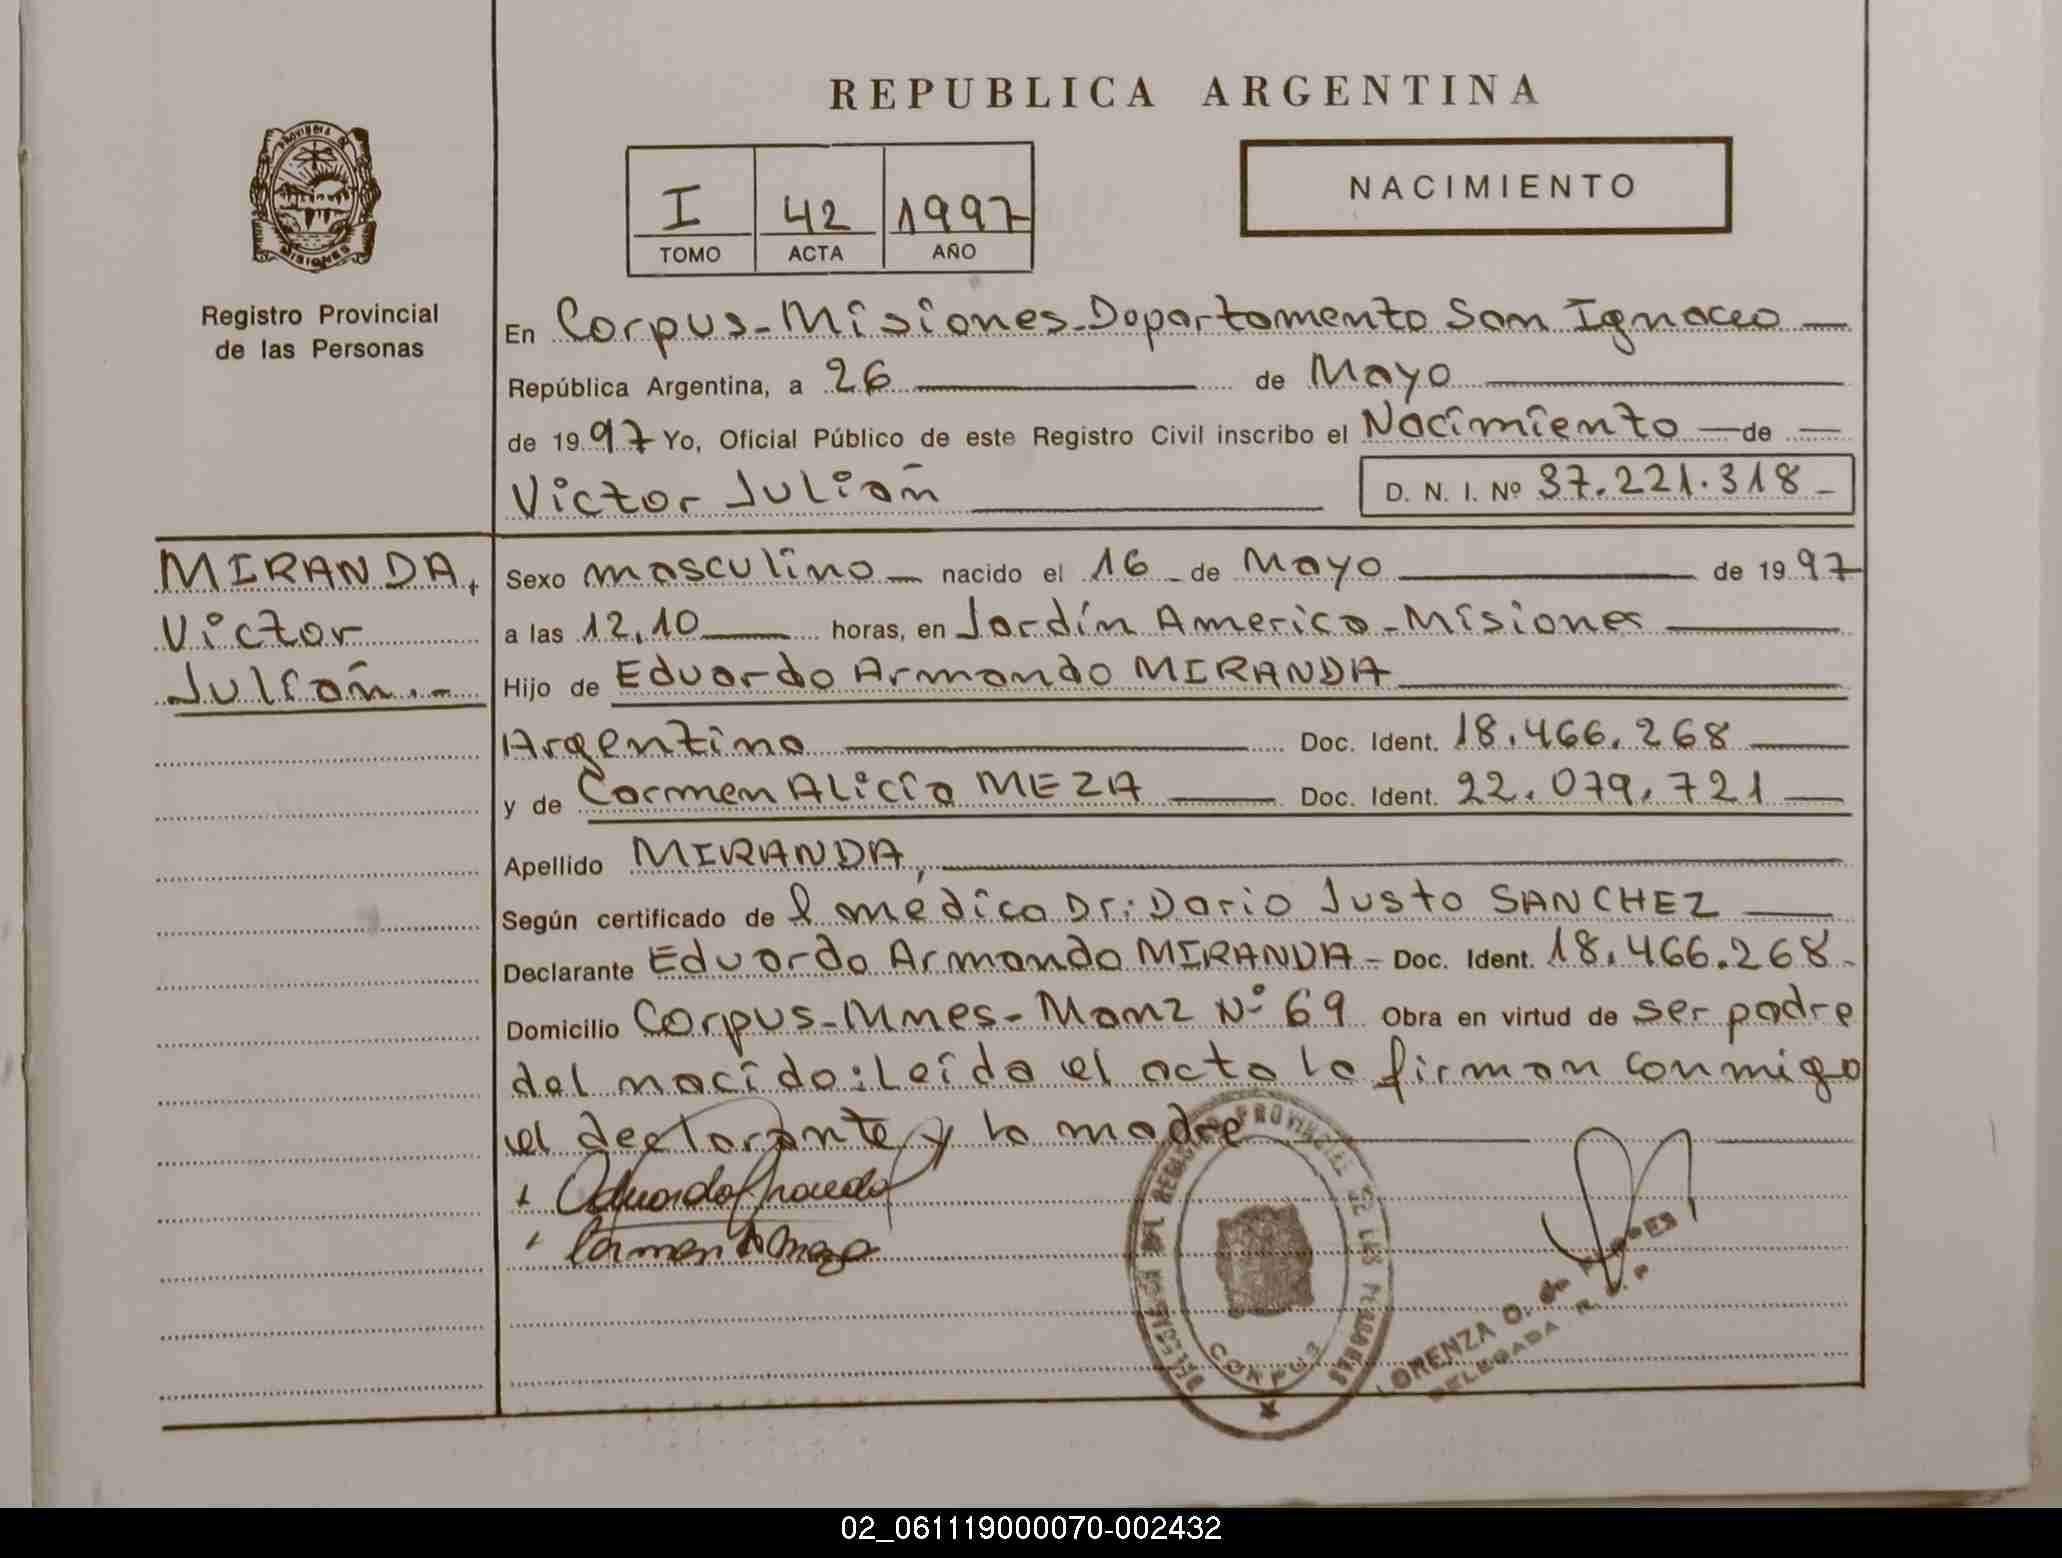 REPUBLICA ARGENTINA
PROVINCIA DE
MISIONES
Registro Provincial
de las Personas
I 42 1997
TOMO ACTA AÑO
NACIMIENTO
En Corpus-Misiones-Departamento San Ignacio
República Argentina, a 26 de Mayo
de 1997 Yo, Oficial Público de este Registro Civil inscribo el Nacimiento de
Victor Julián
D. N. I. Nº 37.221.318
MIRANDA,
Victor
Julián.-
Sexo masculino nacido el 16 de Mayo de 1997
a las 12,10 horas, en Jardín America-Misiones
Hijo de Eduardo Armando MIRANDA
Argentino Doc. Ident. 18.466.268
y de Carmen Alicia MEZA Doc. Ident. 22.079.721
Apellido MIRANDA,
Según certificado de l médico Dr: Dario Justo SANCHEZ
Declarante Eduardo Armando MIRANDA- Doc. Ident. 18.466.268-
Domicilio Corpus-Mnes-Manz Nº 69 Obra en virtud de ser padre
del nacido: Leída el acta la firman conmigo
el declarante y la madre
Carmen A Meza
DEL REGISTRO PROVINCIAL DE LAS PERSONAS
CORPUS
LORENZA O. de
DELEGADA R. P.
02_061119000070-002432